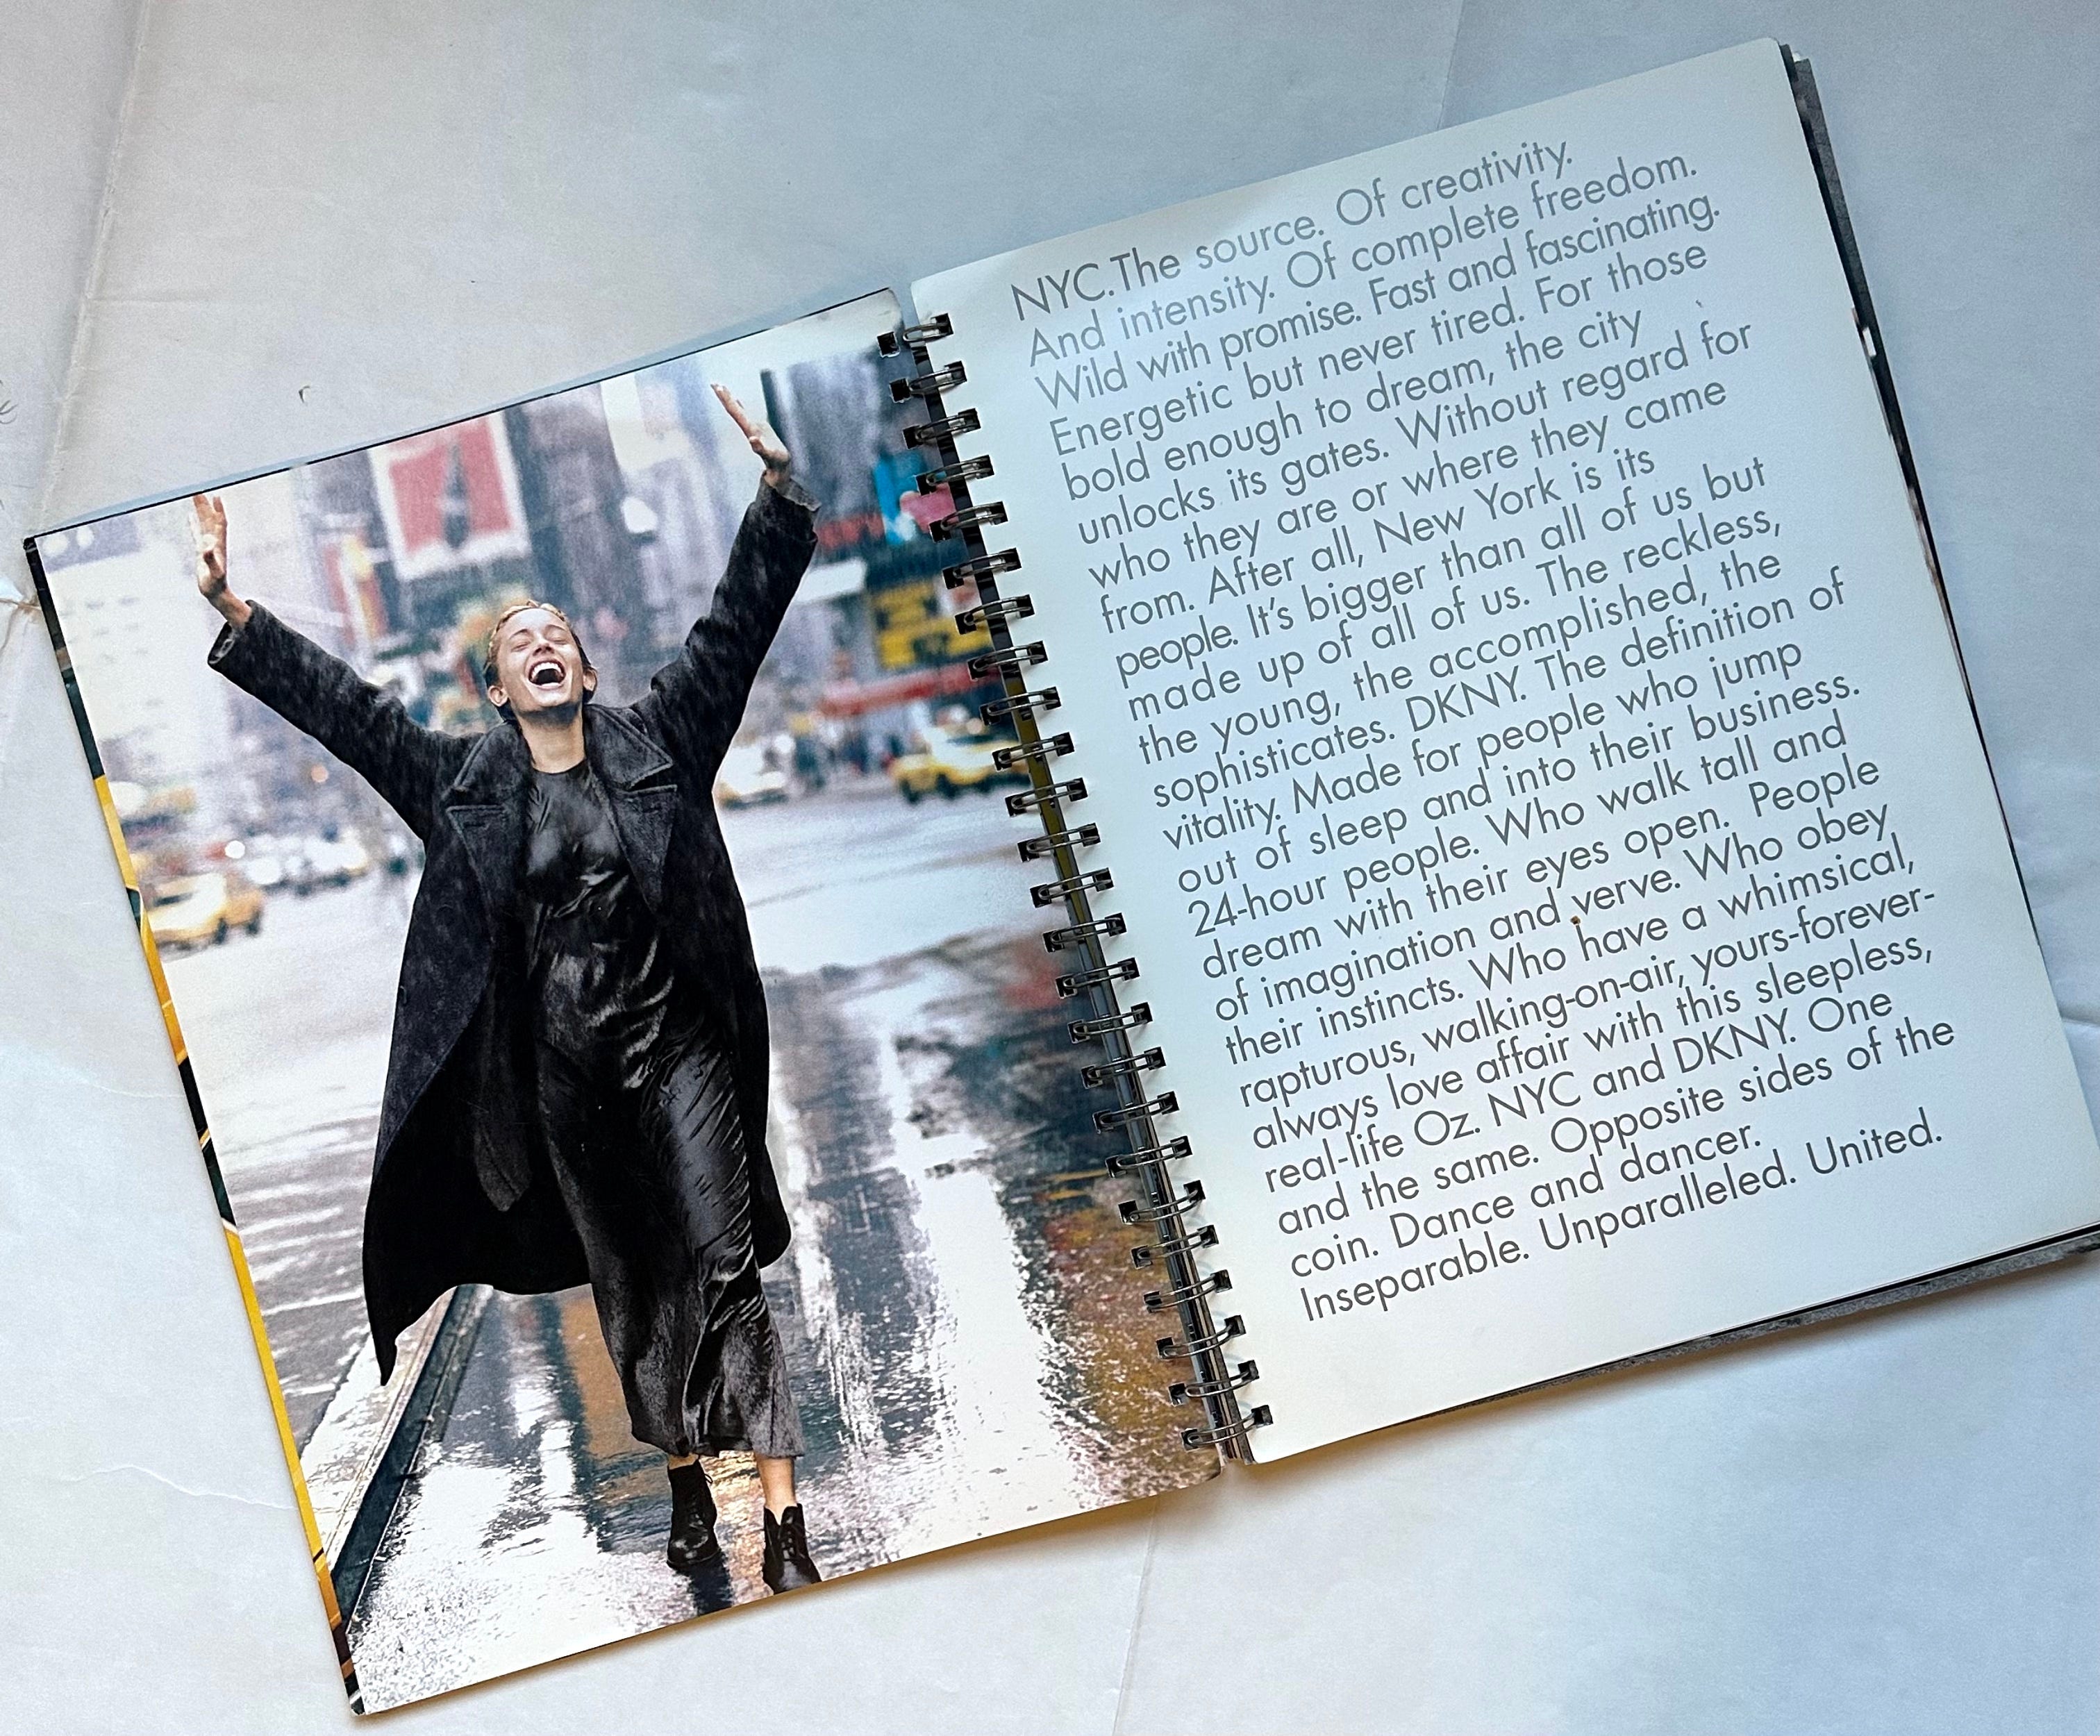 NYC.The source. Of creativity.
And intensity. Of complete freedom.
Wild with promise. Fast and fascinating.
Energetic but never tired. For those
bold enough to dream, the city
unlocks its gates. Without regard for
who they are or where they came
from. After all, New York is its
people. It's bigger than all of us but
made up of all of us. The reckless,
the young, the accomplished, the
sophisticates. DKNY. The definition of
vitality. Made for people who jump
out of sleep and into their business.
24-hour people. Who walk tall and
dream with their eyes open. People
of imagination and verve. Who obey
their instincts. Who have a whimsical,
rapturous, walking-on-air, yours-forever-
always love affair with this sleepless,
real-life Oz. NYC and DKNY. One
and the same. Opposite sides of the
coin. Dance and dancer.
Inseparable. Unparalleled. United.